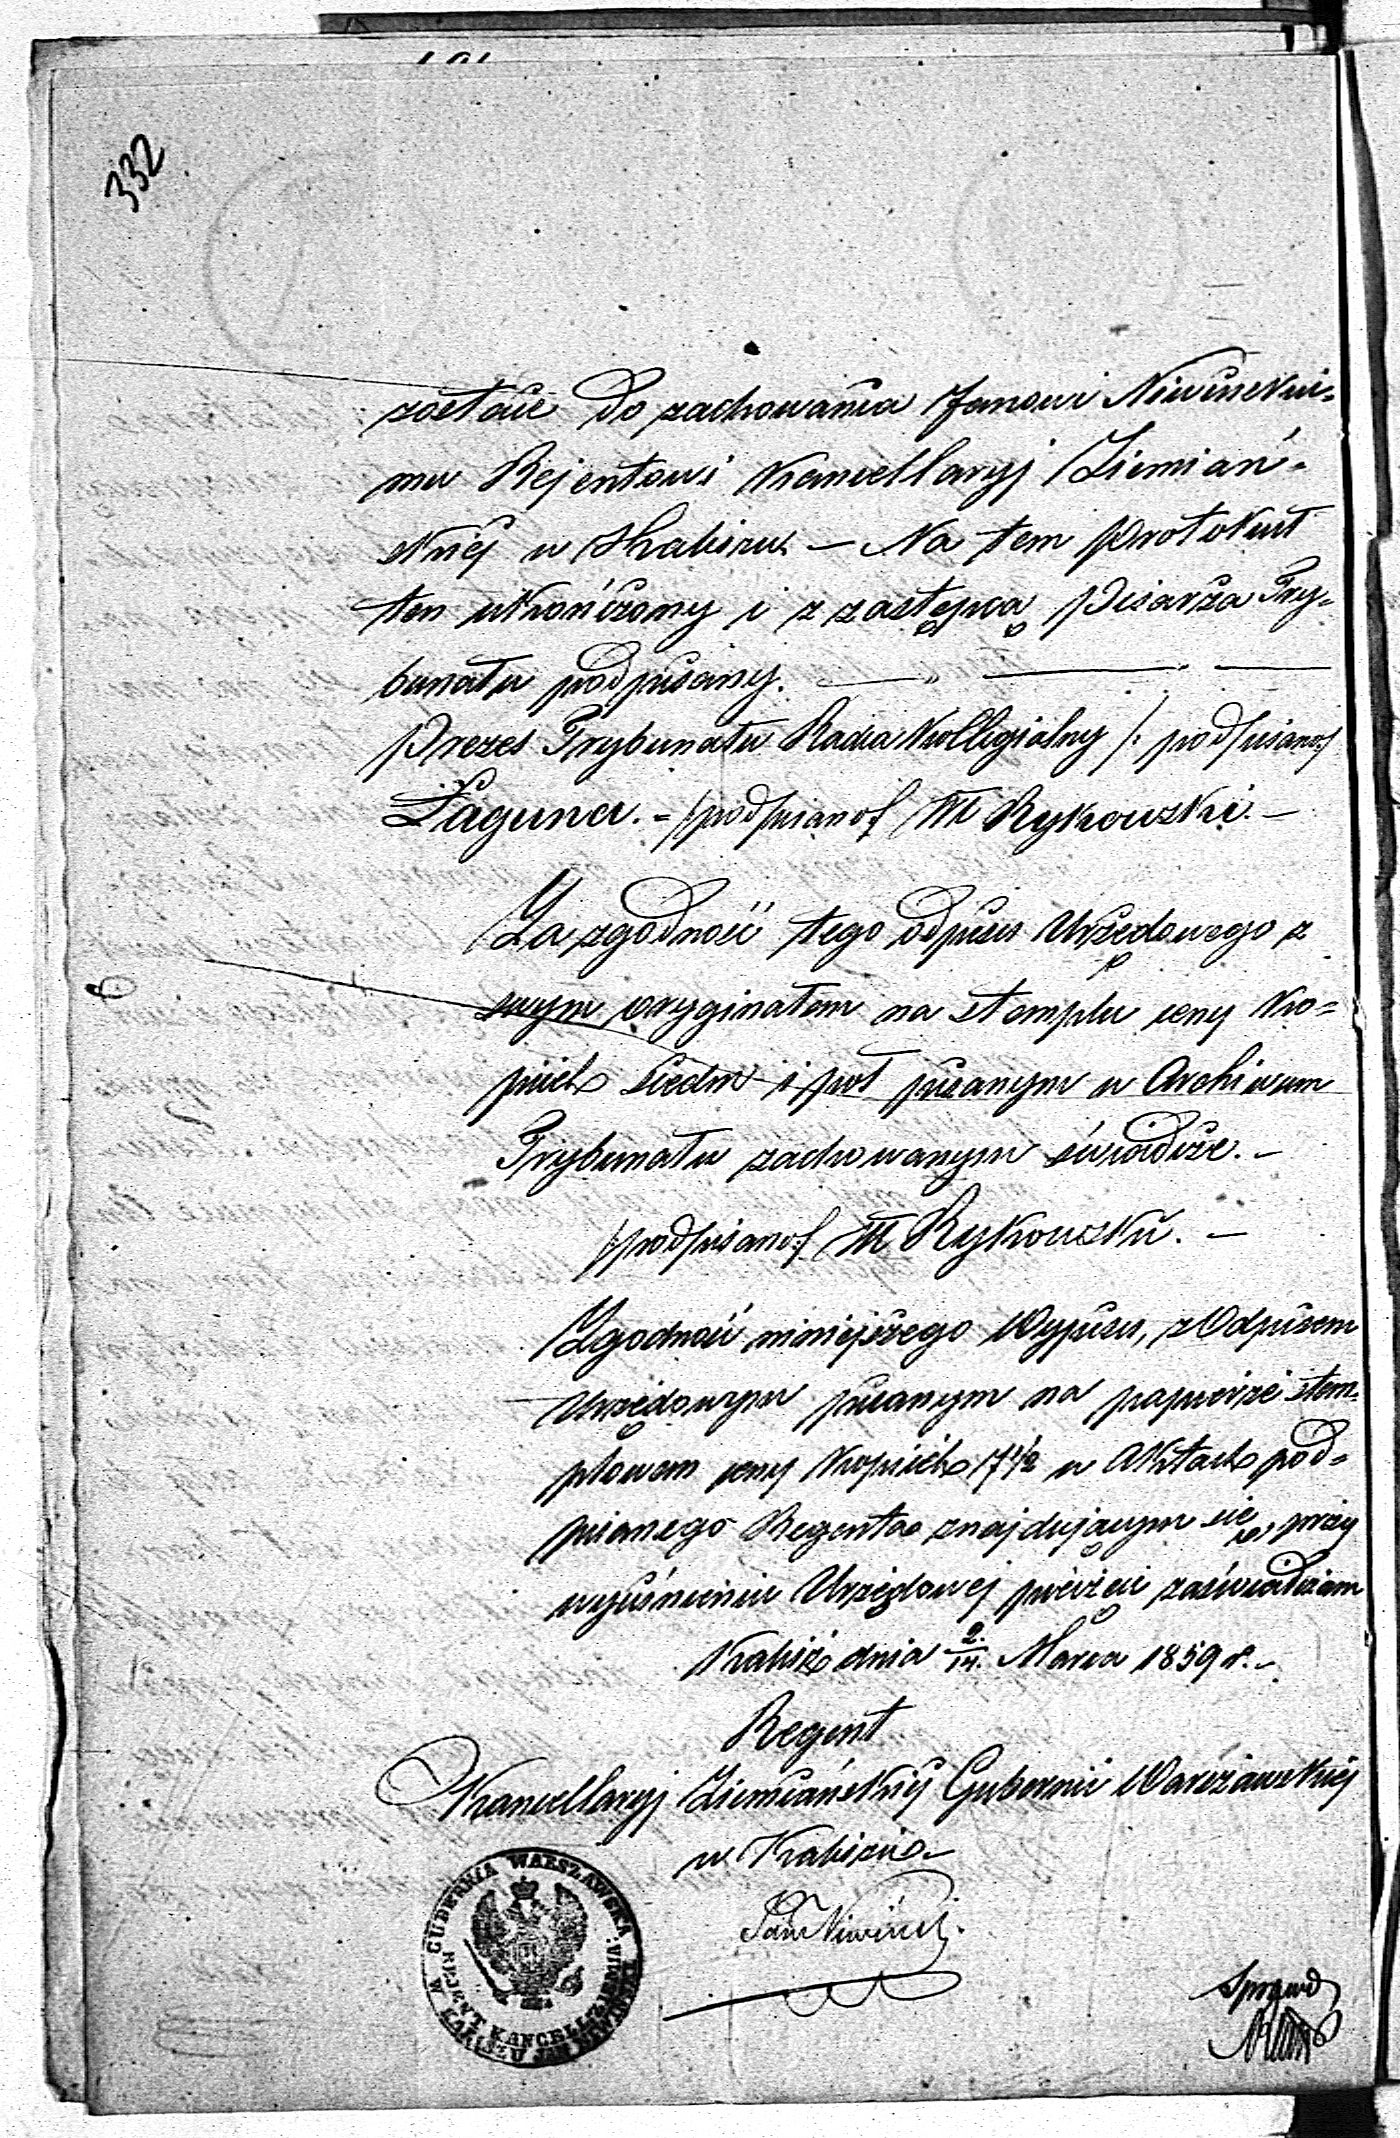 332
zostaie do zachowania Janowi Niwinskie-
mu Rejentowi Kancellaryj Ziemiań-
skiéj w Kaliszu — Na tem protokuł
ten ukończony i z zastępcą Pisarza Try-
bunału podpisany. —
Prezes Trybunału Radca Kollegialny /: podpisano :/
Łaguna. - /: podpisano :/ M Rykowski. —
Za zgodność tego odpisu Urzędowego z
swym oryginałem na stemplu ceny ko-
piiek siedm i pół pisanym w Archiwum
Trybunału zachowanym świadczę. —
/: podpisano :/ M Rykowski. —
Zgodność niniejszego Wypisu, z Odpisem
Urzędowym pisanym na papierze stem-
plowem ceny kopiiek 17½ w Aktach pod-
pisanego Regenta znajdującym się, przy
wyciśnieniu Urzędowej pieczęci zaświadczam
Kalisz dnia 2/14. Marca 1859 r. —
Regent
Kancellaryj Ziemiańskiéj Gubernii Warszawskiéj
w Kaliszu —
Jan Niwiński.
GUBERNIA WARSZAWSKA
REJENT KANCELL: ZIEMIAN:
W KALISZU JAN NIWINSKI
Sprawd